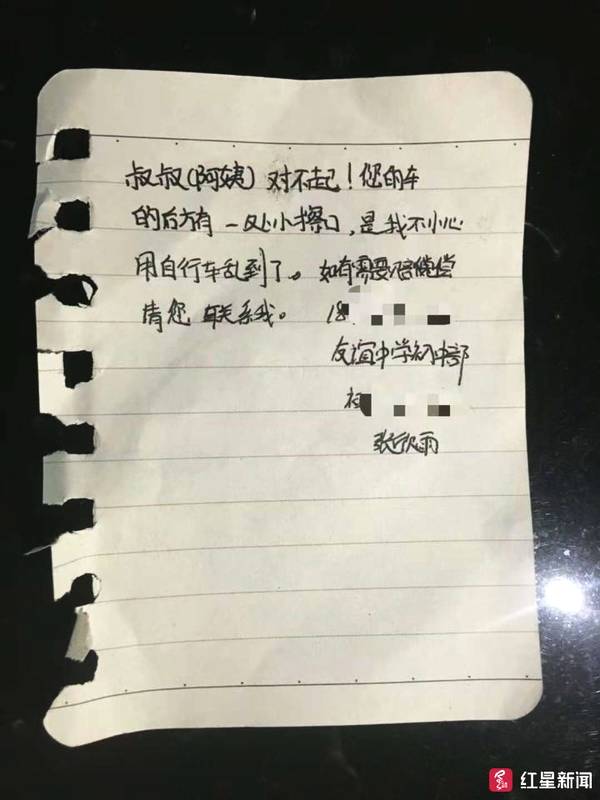 叔叔(阿姨) 对不起！您的车
的后方有一处小擦口，是我不小心
用自行车乱到了。如有需要赔偿
请您联系我。 18
友谊中学初中部
初
张欣雨
红星新闻